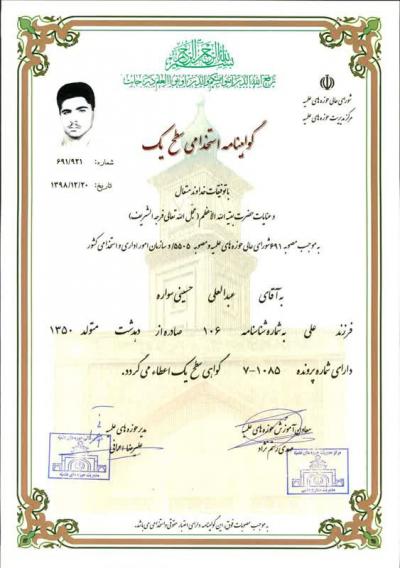 بسم الله الرحمن الرحیم
شورای عالی حوزه های علمیه
مرکز مدیریت حوزه های علمیه
گواهینامه استخدامی سطح یک
شماره: ۶۹۱/۹۲۱
تاریخ: ۱۳۹۸/۱۲/۲۰
با توفیقات خداوند متعال
و عنایات حضرت بقیة الله الاعظم (عجل الله تعالی فرجه الشریف)
به موجب مصوبه ۶۹۱ شورای عالی حوزه های علمیه و مصوبه ۵۵۰۵/د سازمان امور اداری و استخدامی کشور
به آقای عبدالعلی حسینی سواره
فرزند علی به شماره شناسنامه ۱۰۶ صادره از دهدشت متولد ۱۳۵۰
دارای شماره پرونده ۷-۱۰۸۵ گواهی سطح یک اعطاء می گردد.
معاون آموزش حوزه های علمیه
مدیر حوزه های علمیه
علیرضا اعرافی
به موجب مصوبات فوق، این گواهینامه دارای اعتبار حقوقی و استخدامی می باشد.